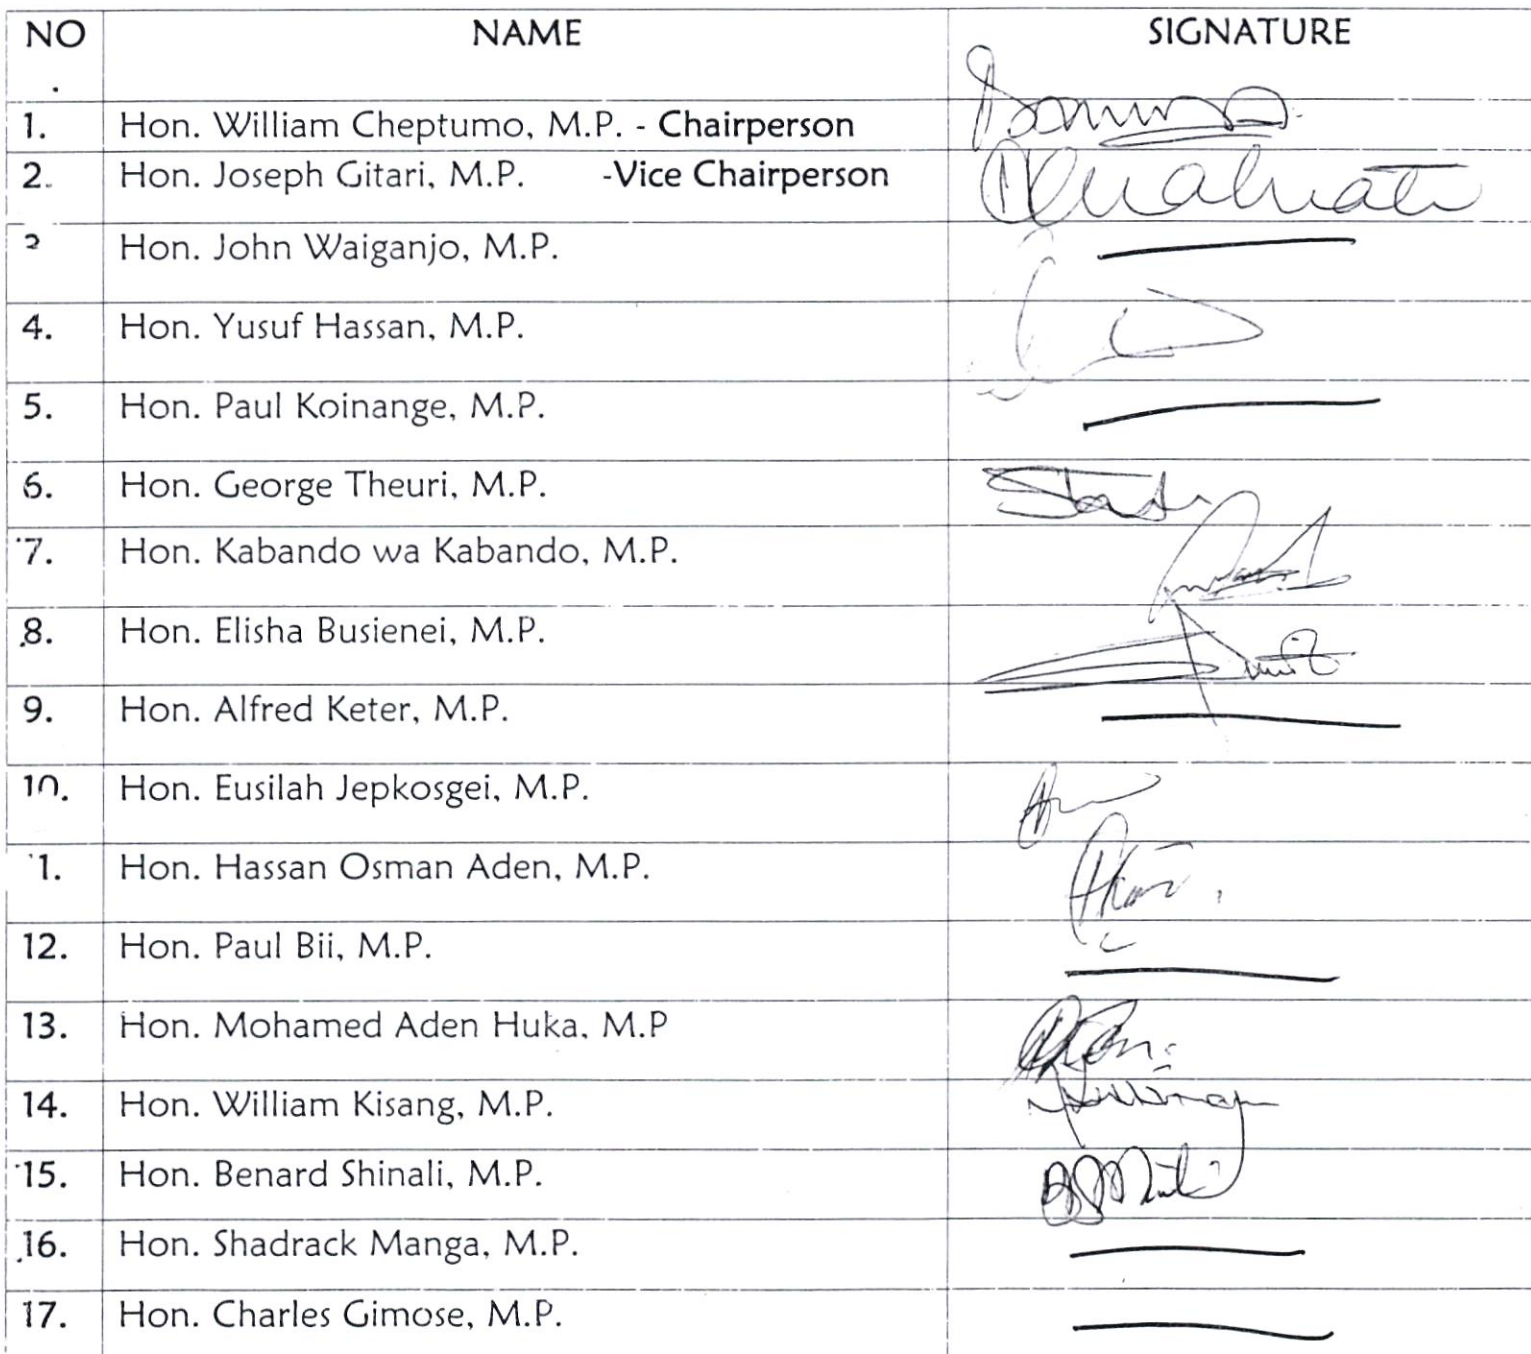 NO NAME SIGNATURE
.
1. Hon. William Cheptumo, M.P. - Chairperson
2. Hon. Joseph Gitari, M.P. -Vice Chairperson
3 Hon. John Waiganjo, M.P.
4. Hon. Yusuf Hassan, M.P.
5. Hon. Paul Koinange, M.P.
6. Hon. George Theuri, M.P.
7. Hon. Kabando wa Kabando, M.P.
8. Hon. Elisha Busienei, M.P.
9. Hon. Alfred Keter, M.P.
10. Hon. Eusilah Jepkosgei, M.P.
11. Hon. Hassan Osman Aden, M.P.
12. Hon. Paul Bii, M.P.
13. Hon. Mohamed Aden Huka, M.P
14. Hon. William Kisang, M.P.
15. Hon. Benard Shinali, M.P.
16. Hon. Shadrack Manga, M.P.
17. Hon. Charles Gimose, M.P.